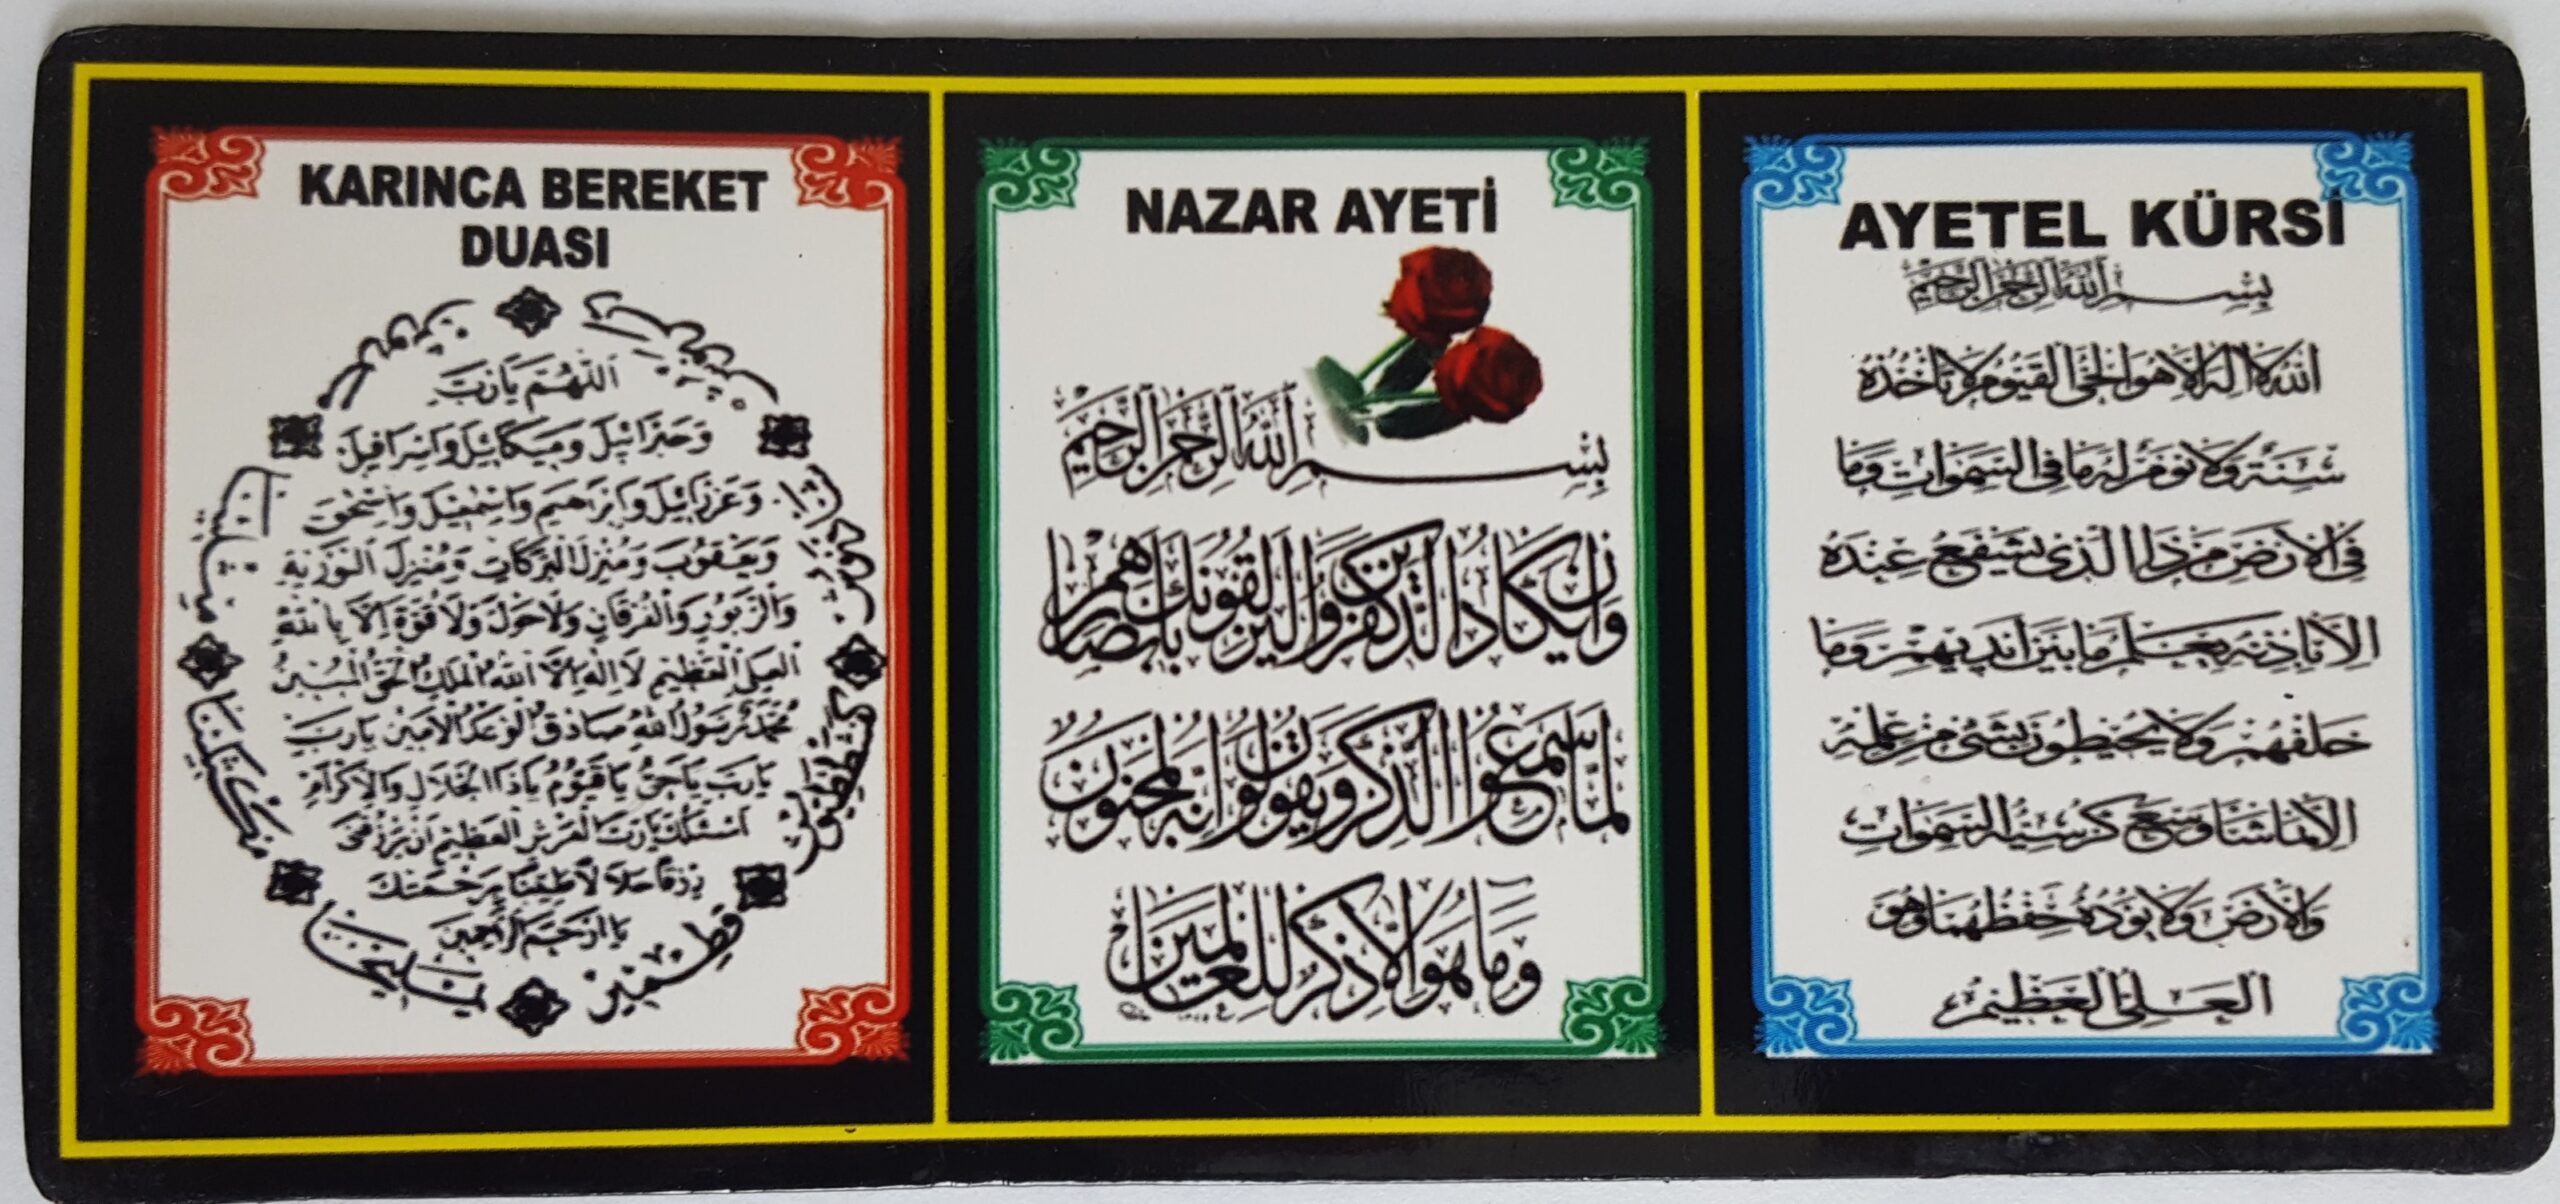 KARINCA BEREKET
DUASI
اللهم يارب
وجبرائيل وميكائيل واسرافيل
وعزرائيل وابراهيم واسمعيل واسحق
ويعقوب ومنزل البركات ومنزل التورية
والزبور والفرقان ولا حول ولا قوة الا بالله
العلي العظيم لا اله الا الله الملك الحق المبين
محمد رسول الله صادق الوعد الامين يارب
يارب ياحي ياقيوم ياذا الجلال والاكرام
اسئلك يارب العرش العظيم ان يرزقني
رزقا حلالا طيبا برحمتك
يا ارحم الراحمين
يمليخا
مكثلينا
مثلينا
مرنوش
دبرنوش
شاذنوش
كفشططيوش
قطمير
NAZAR AYETİ
بسم الله الرحمن الرحيم
وان يكاد الذين كفروا ليزلقونك بابصارهم
لما سمعوا الذكر ويقولون انه لمجنون
وما هو الا ذكر للعالمين
AYETEL KÜRSİ
بسم الله الرحمن الرحيم
الله لا اله الا هو الحي القيوم لا تأخذه
سنة ولا نوم له ما في السموات وما
في الارض من ذا الذي يشفع عنده
الا باذنه يعلم ما بين ايديهم وما
خلفهم ولا يحيطون بشئ من علمه
الا بما شاء وسع كرسيه السموات
والارض ولا يؤده حفظهما وهو
العلي العظيم